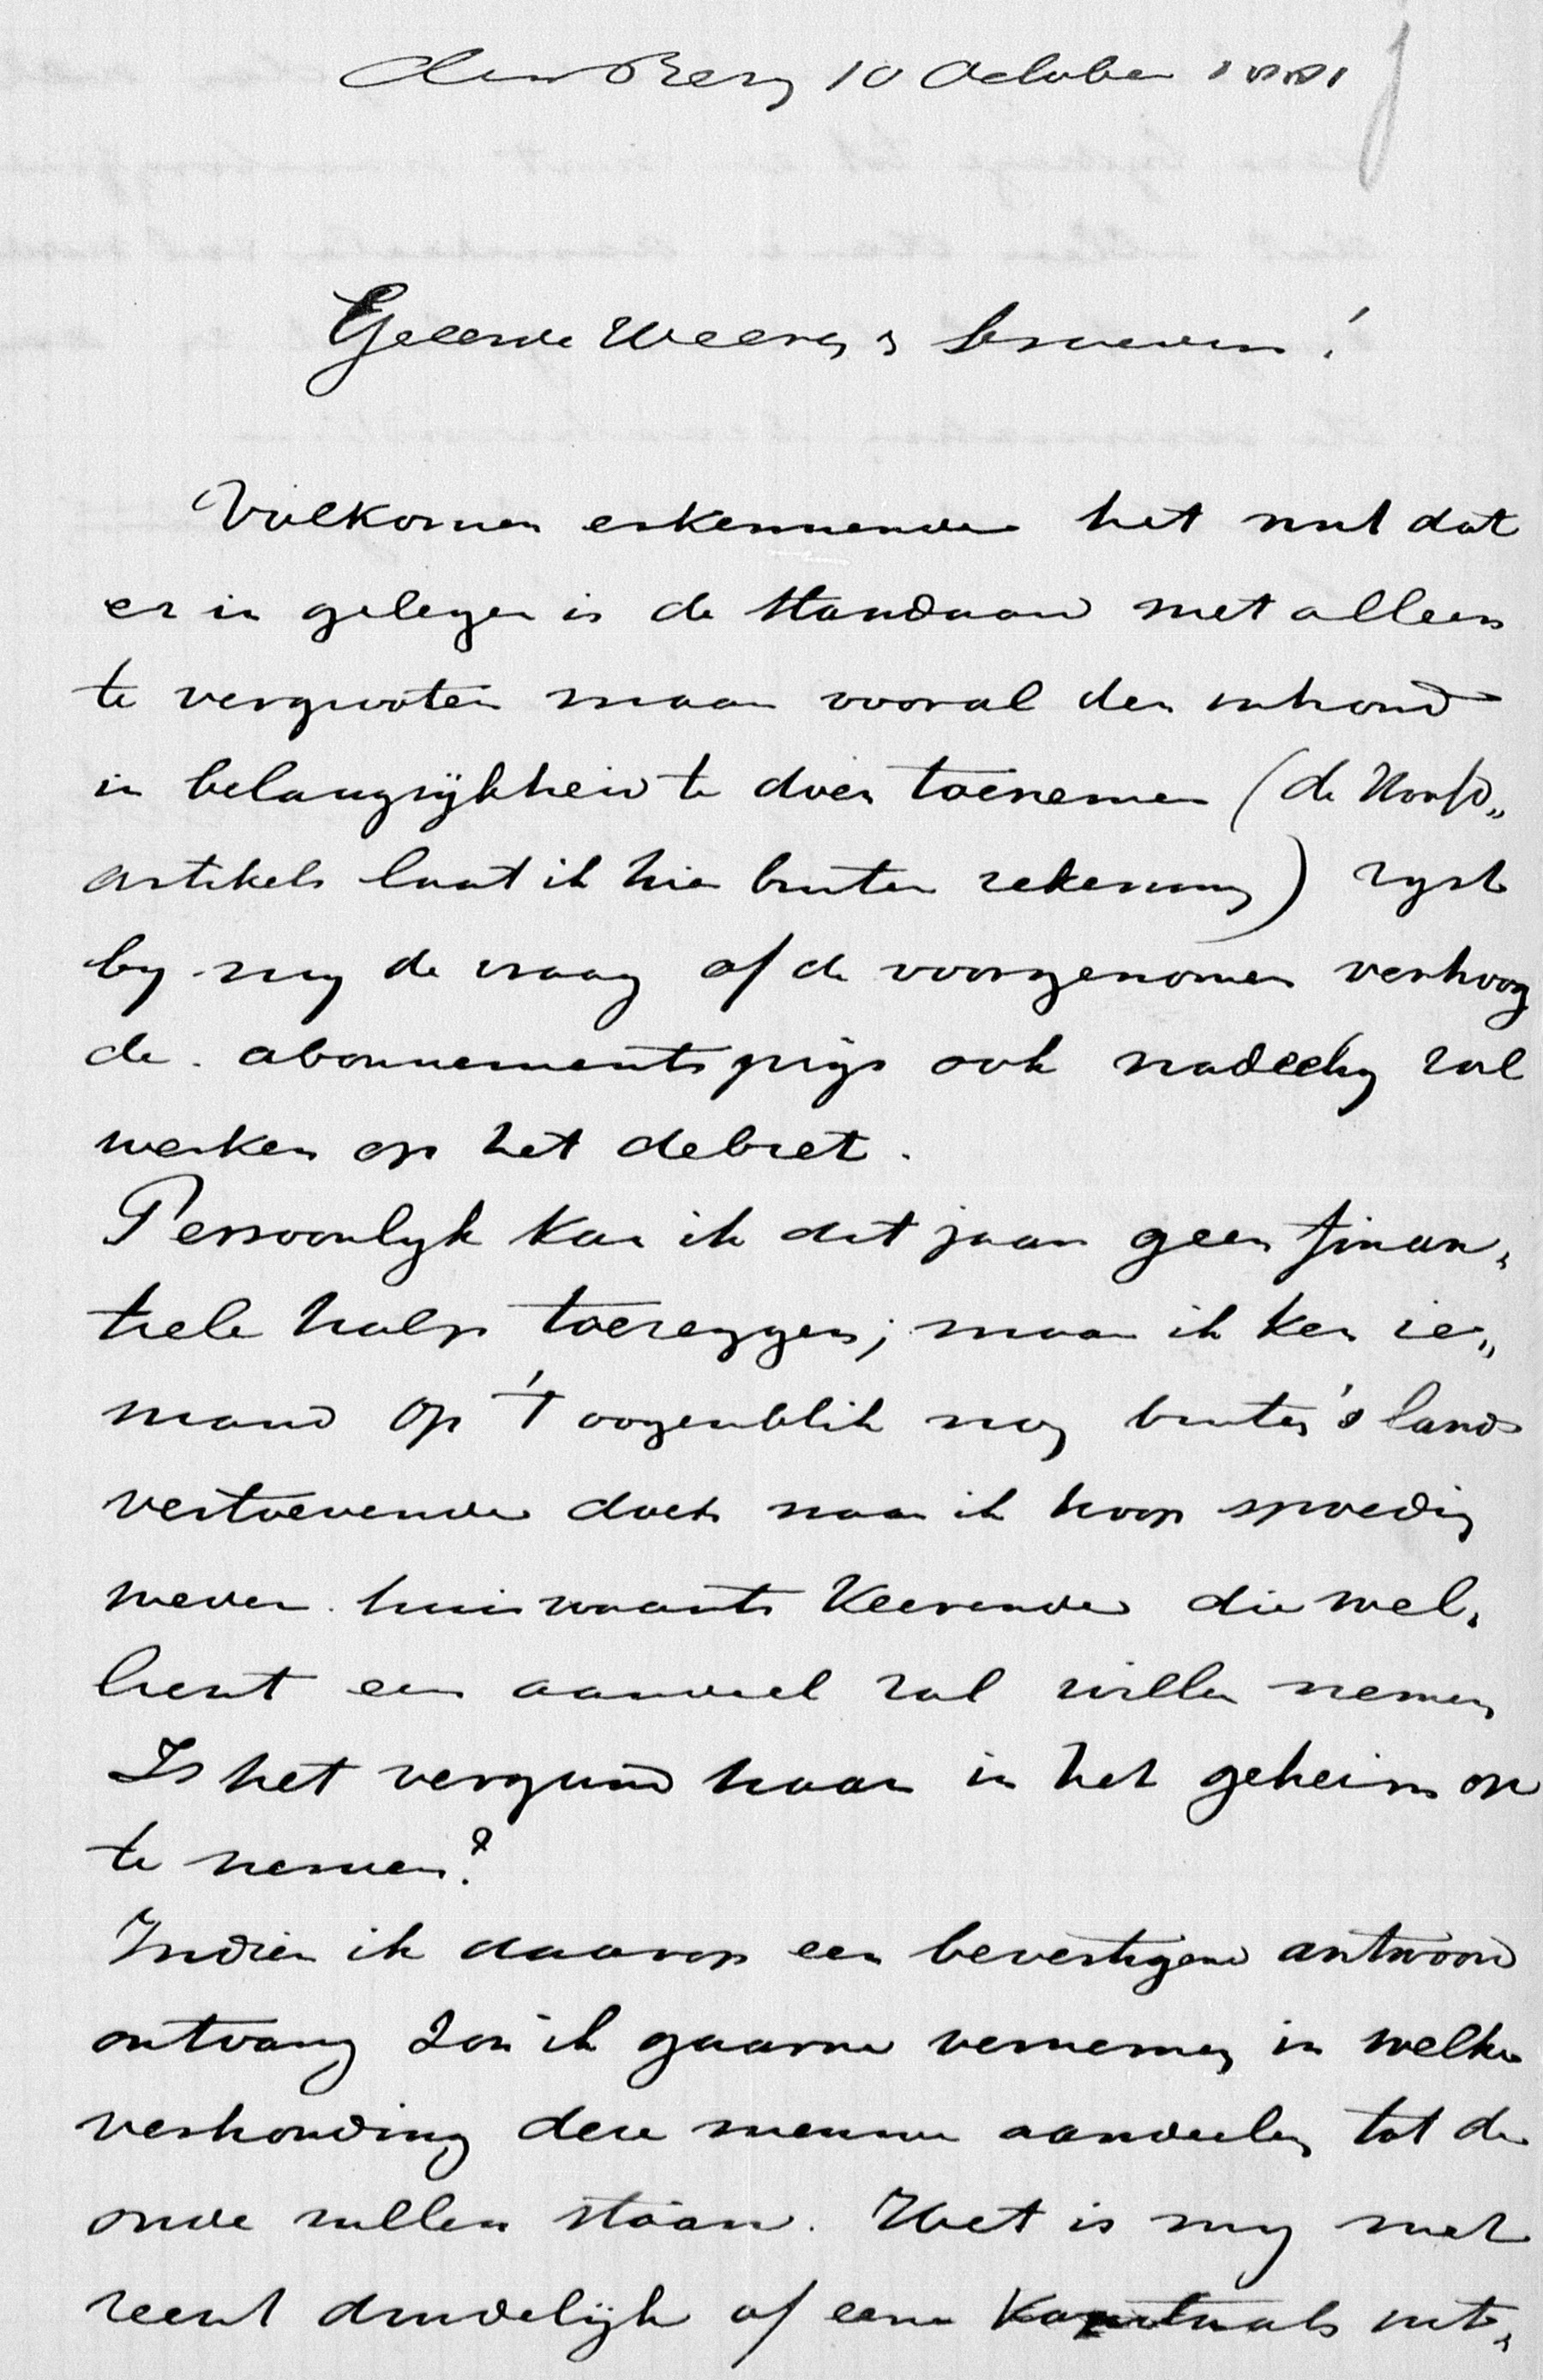 den Berg 10 October 1881
Geëerde Weera, & broeders!
Volkomen erkennende het nut dat
er in gelegen is de Standaard niet alleen
te vergrooten maar vooral den inhoud
in belangrijkheid te doen toenemen (de Hoofd„
artikels laat ik hier buiten rekening) ryst
by my de vraag of de voorgenomen verhoog
de abonnementsprijs ook nadeelig zal
werken op het debiet.
Persoonlyk kan ik dit jaar geen finan„
tiele hulp toezeggen; maar ik ken ie„
mand op 't oogenblik nog buiten 's lands
vertoevende doch naar ik hoop spoedig
weder huiswaarts keerende die wel„
licht een aandeel zal willen nemen
Is het vergund haar in het geheim op
te nemen?
Indien ik daarop een bevestigend antwoord
ontvang zou ik gaarne vernemen in welke
verhouding deze nieuwe aandeelen tot de
oude zullen staan. Het is my niet
recht duidelijk of eene kapitaals uit„